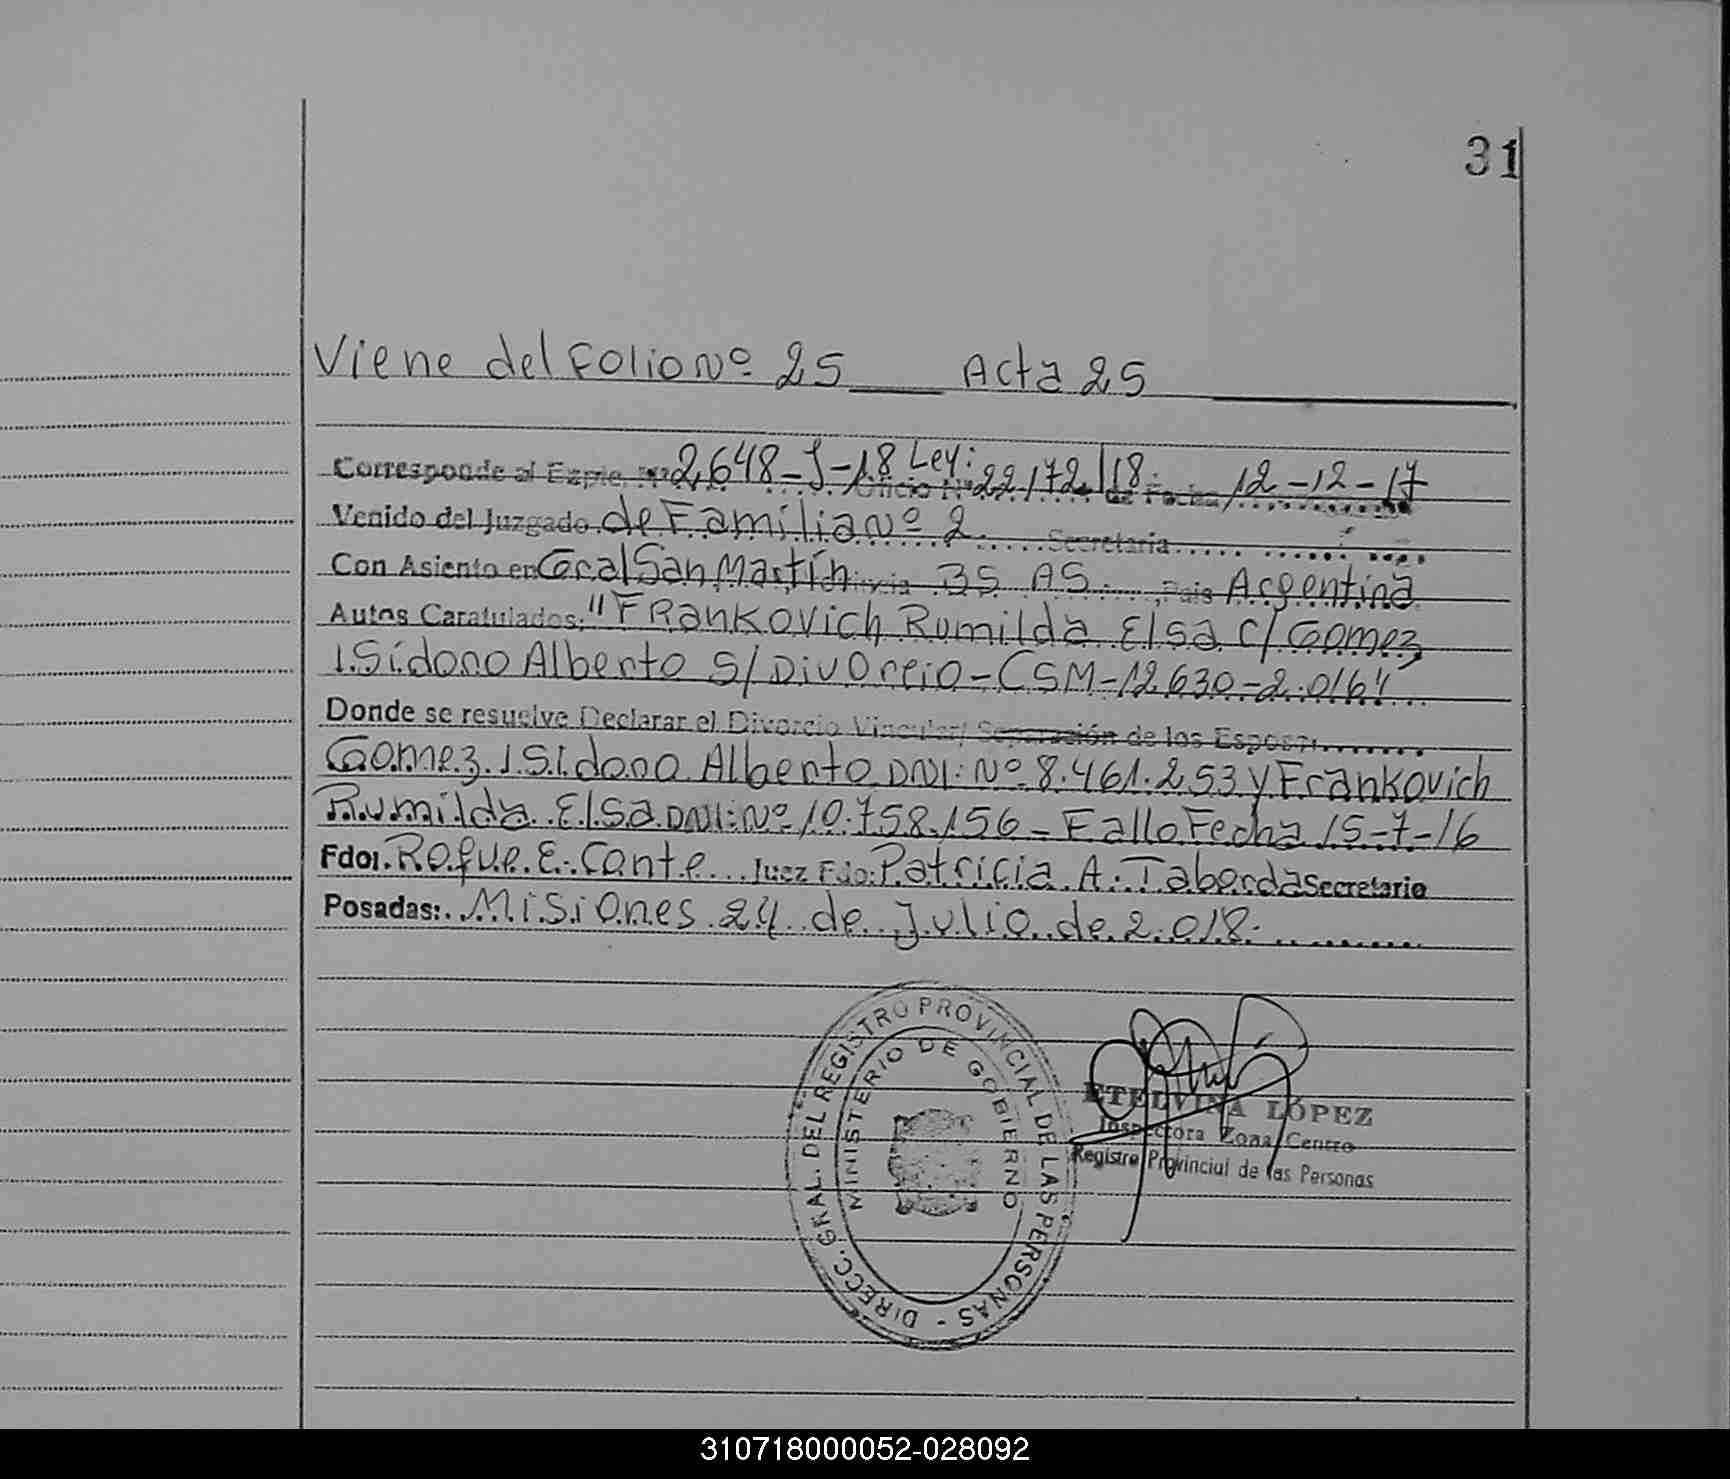 31
Viene del Folio Nº 25 ___ Acta 25
Corresponde al Expte. Nº 2648-J-18 Ley: 22172/18. de Fecha 12-12-17
Venido del Juzgado de Familia Nº 2 ..... Secretaria.....
Con Asiento en Gral San Martín BS AS. Pais Argentina
Autos Caratulados: "Frankovich Rumilda Elsa C/ Gomez
Isidoro Alberto S/ Divorcio-CSM-12630-2.016"
Donde se resuelve Declarar el Divorcio Vincular/ Separación de los Esposos:
Gomez Isidoro Alberto DNI: Nº 8.461.253 y Frankovich
Rumilda Elsa DNI: Nº 10.758.156 - Fallo Fecha 15-7-16
Fdo: Roque E. Conte Juez Fdo: Patricia A. Taborda Secretario
Posadas: Misiones 24 de Julio de 2.018.
DIRECC. GRAL. DEL REGISTRO PROVINCIAL DE LAS PERSONAS -
MINISTERIO DE GOBIERNO
ETELVINA LÓPEZ
Inspectora Zona Centro
Registro Provincial de las Personas
310718000052-028092